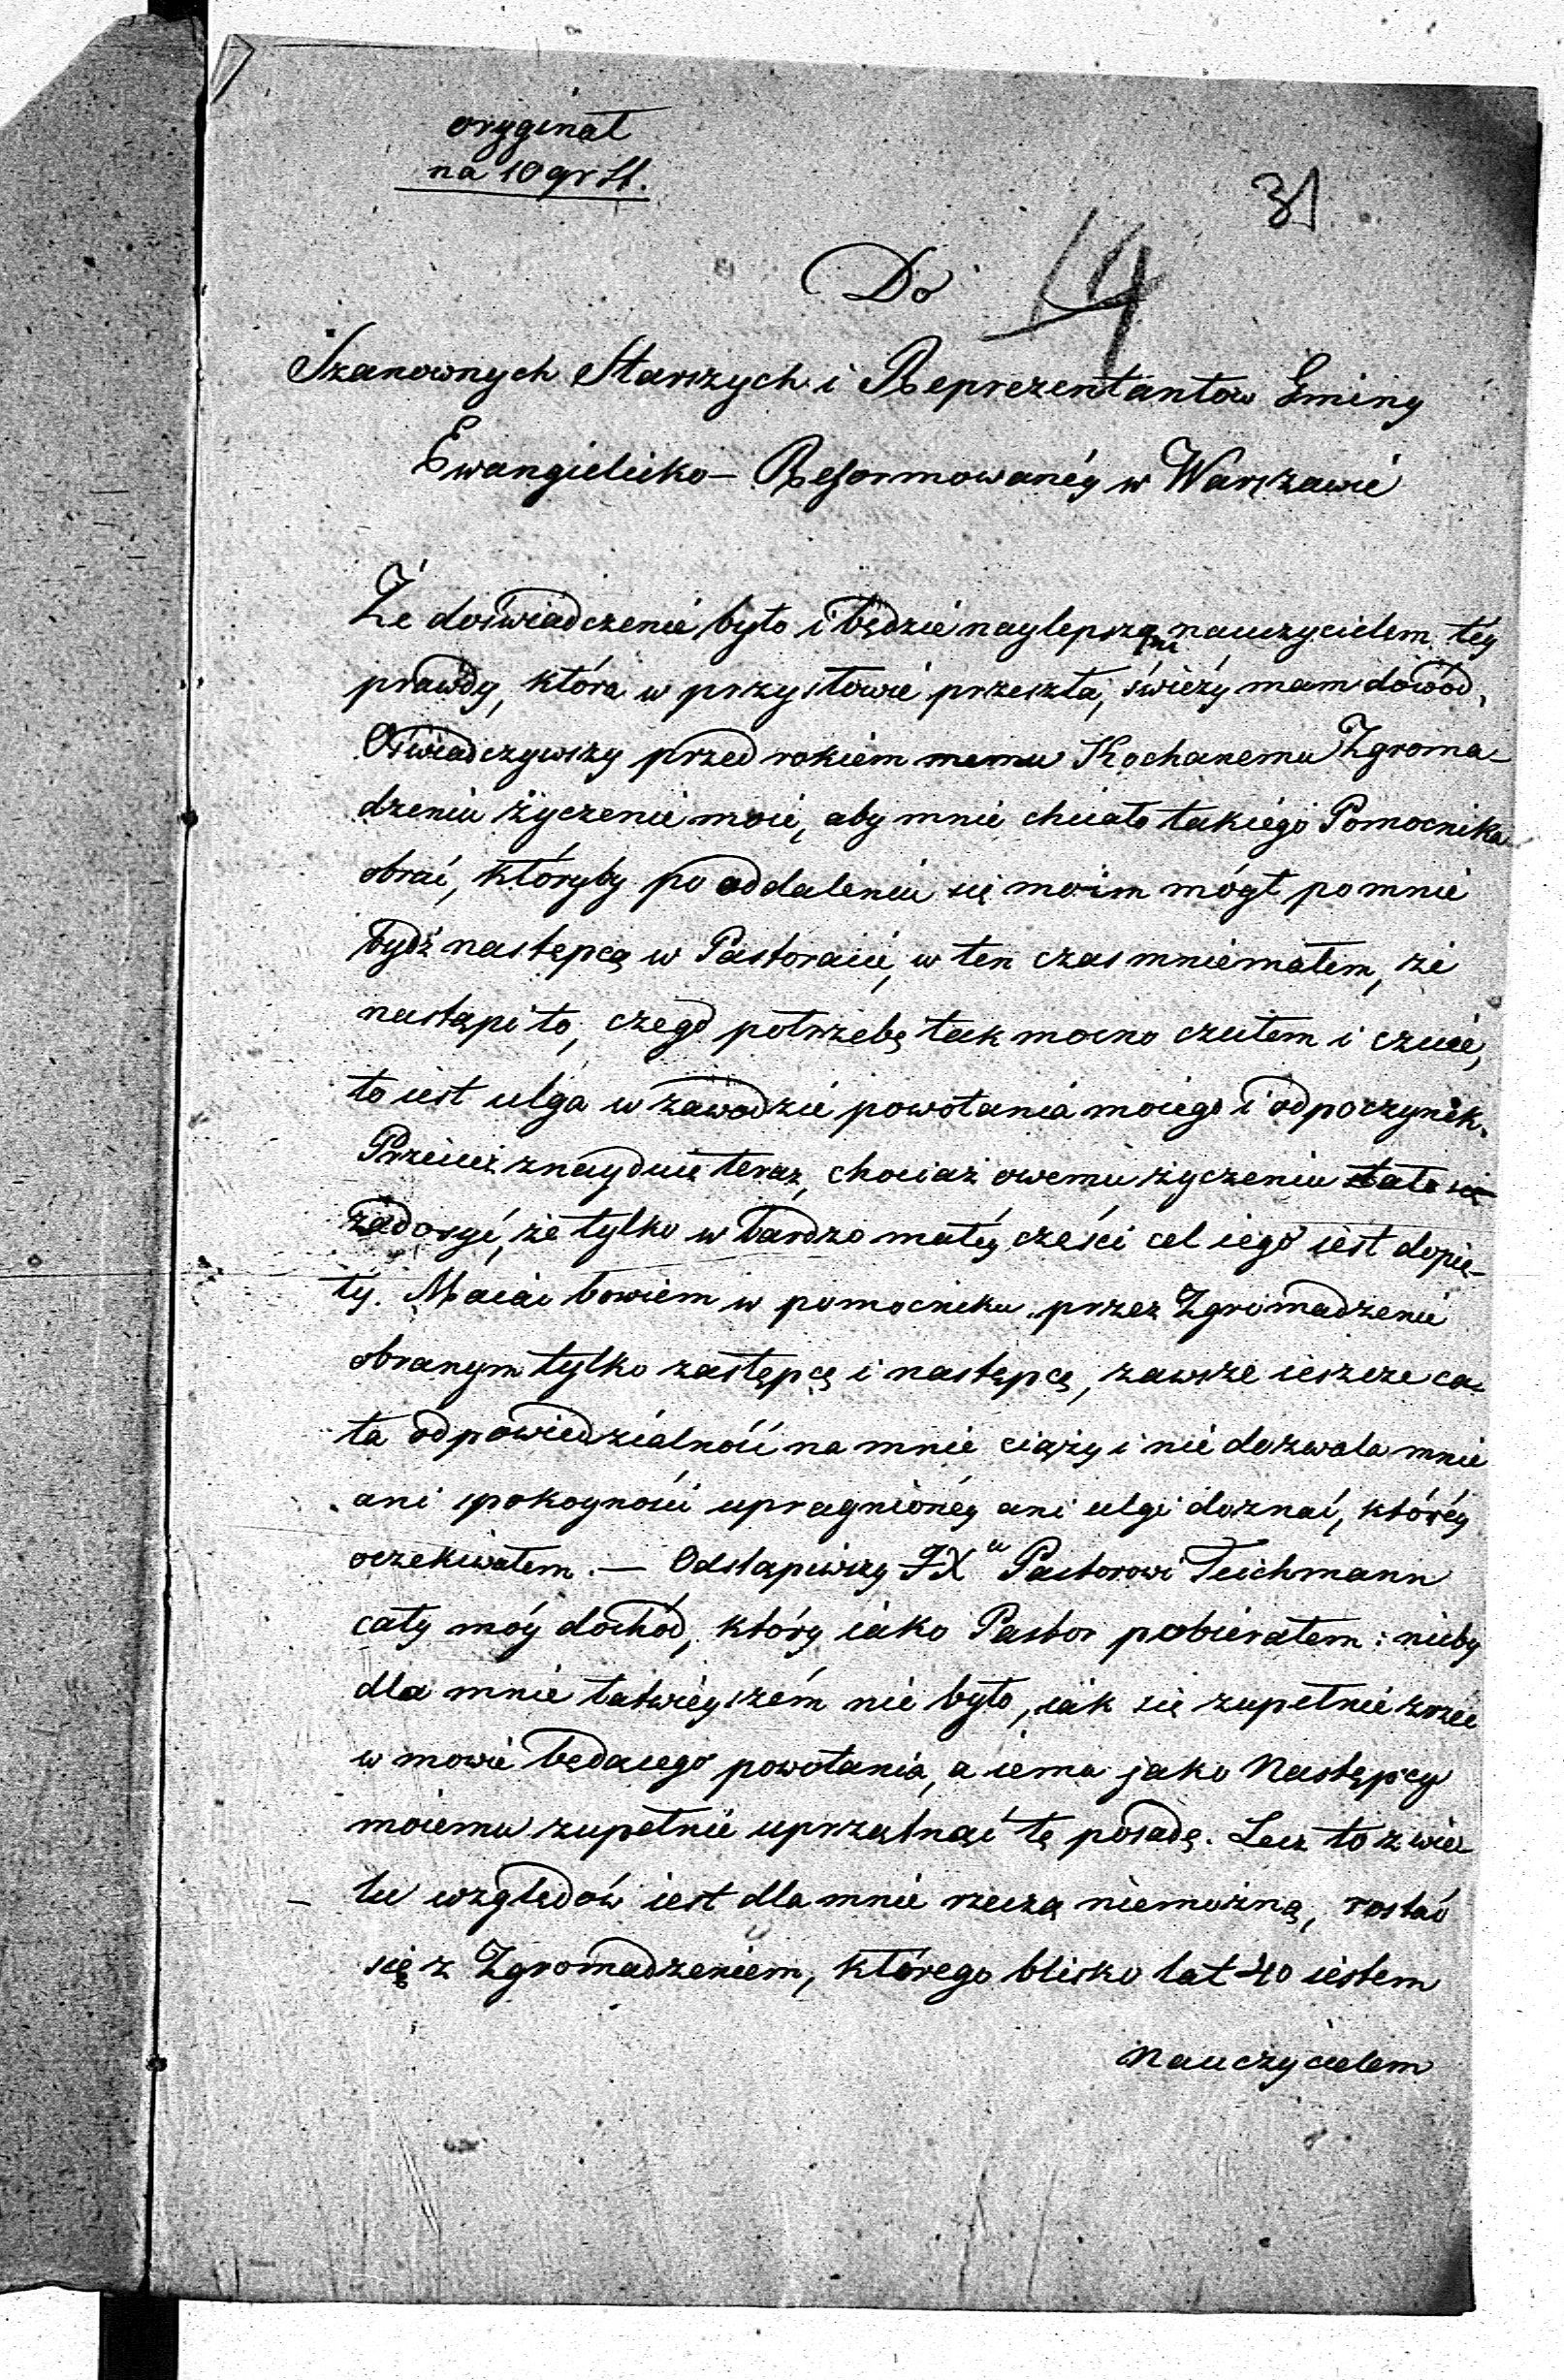 oryginał
na 10 gr St.
31
14
Do
Szanownych Starszych i Reprezentantów Gminy
Ewangielicko – Reformowanéy w Warszawie
Że doświadczenie było i będzie naylepszym nauczycielem téy
prawdy, która w przysłowie przeszła, świeży mam dowód.
Oświadczywszy przed rokiem memu Kochanemu Zgroma-
dzeniu życzenie moie, aby mnie chciało takiego Pomocnika
obrać, któryby po oddaleniu się moim mógł po mnie
bydź następcą w Pastoracie, w ten czas mniemałem, że
nastąpi to, czego potrzebę tak mocno czułem i czuię,
to iest ulga w zawodzie powołania moiego i odpoczynek.
Przecież znayduię teraz, chociaż owemu życzeniu stało się
zadosyć, że tylko w bardzo małéy części cel iego iest dopię-
ty. Maiąc bowiem w pomocniku przez Zgromadzenie
obranym tylko zastępcę i następcę, zawsze ieszcze ca-
ła odpowiedzialność na mnie ciąży i nie dozwala mnie
ani spokoyności upragnionéy ani ulgi doznać, któréy
oczekiwałem. — Odstąpiwszy JX Pastorowi Teichmann
cały móy dochód, który iako Pastor pobierałem: nicby
dla mnie łatwieyszém nie było, iak się zupełnie zrzec
w mowie będącego powołania, a iemu jako Następcy
moiemu zupełnie uprzątnąć tę posadę. Lecz to z wie
lu względów iest dla mnie rzeczą niemożną, rostać
się z Zgromadzeniem, którego blisko lat 40 iestem
Nauczycielem